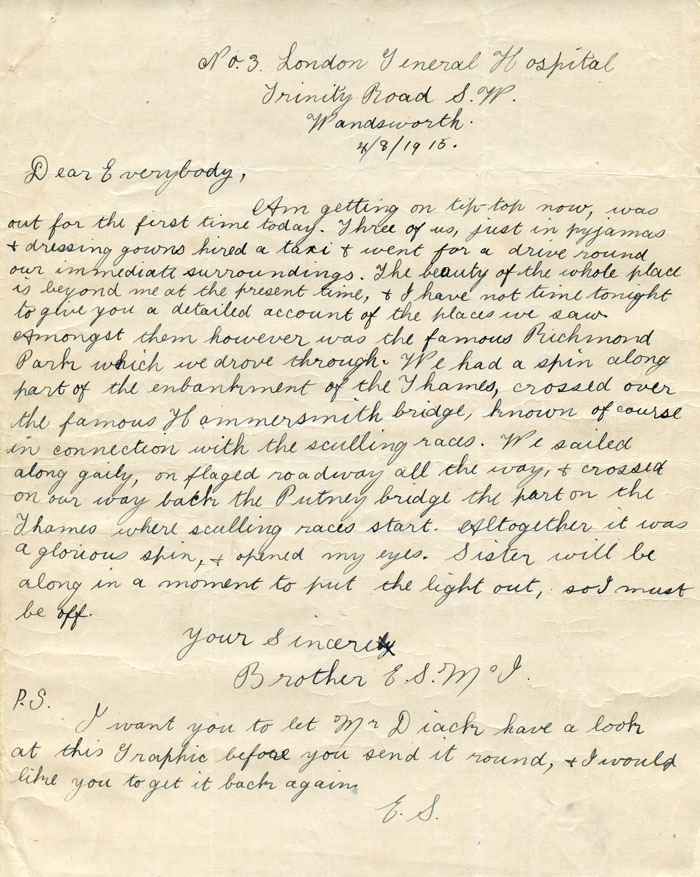 No. 3. London General Hospital
Trinity Road S.W.
Wandsworth.
4/8/1915.
Dear Everybody,
Am getting on tip-top now, was
out for the first time today. Three of us, just in pyjamas
+ dressing gowns hired a taxi + went for a drive round
our immediate surroundings. The beauty of the whole place
is beyond me at the present time, + I have not time tonight
to give you a detailed account of the places we saw.
Amongst them however was the famous Richmond
Park which we drove through. We had a spin along
part of the enbankment of the Thames, crossed over
the famous Hammersmith bridge, known of course
in connection with the sculling races. We sailed
along gaily, on flaged roadway all the way, + crossed
on our way back the Putney bridge the part on the
Thames where sculling races start. Altogether it was
a glorious spin, + opened my eyes. Sister will be
along in a moment to put the light out, so I must
be off.
Your Sincerely
Brother E.S. McI.
P.S.
I want you to let Mr Diack have a look
at this Graphic before you send it round, + I would
like you to get it back again.
E. S.